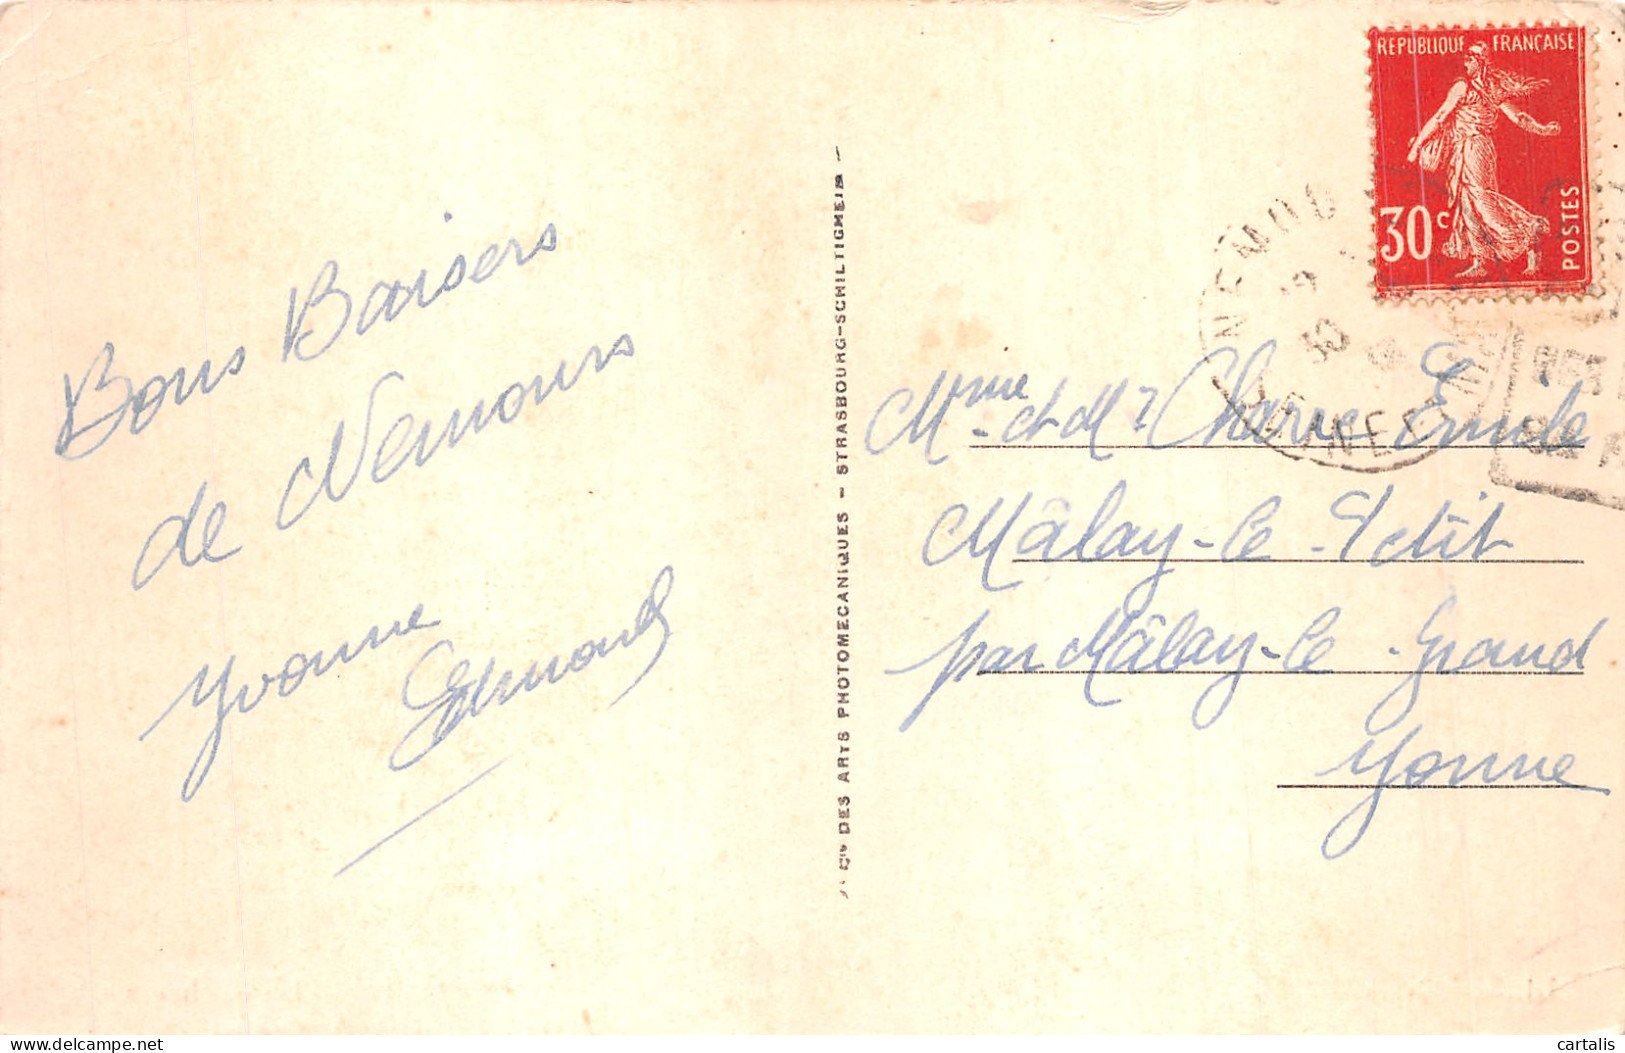 Bons Baisers
de Nemours
Yvonne
Edmond
Cie DES ARTS PHOTOMECANIQUES - STRASBOURG-SCHILTIGHEIM -
REPUBLIQUE FRANÇAISE
30c
POSTES
NEMOU
30
SEINE ET
Mme et Mr Emile
Mâlay-le-Petit
par Mâlay-le-Grand
Yonne
www.delcampe.net
cartalis